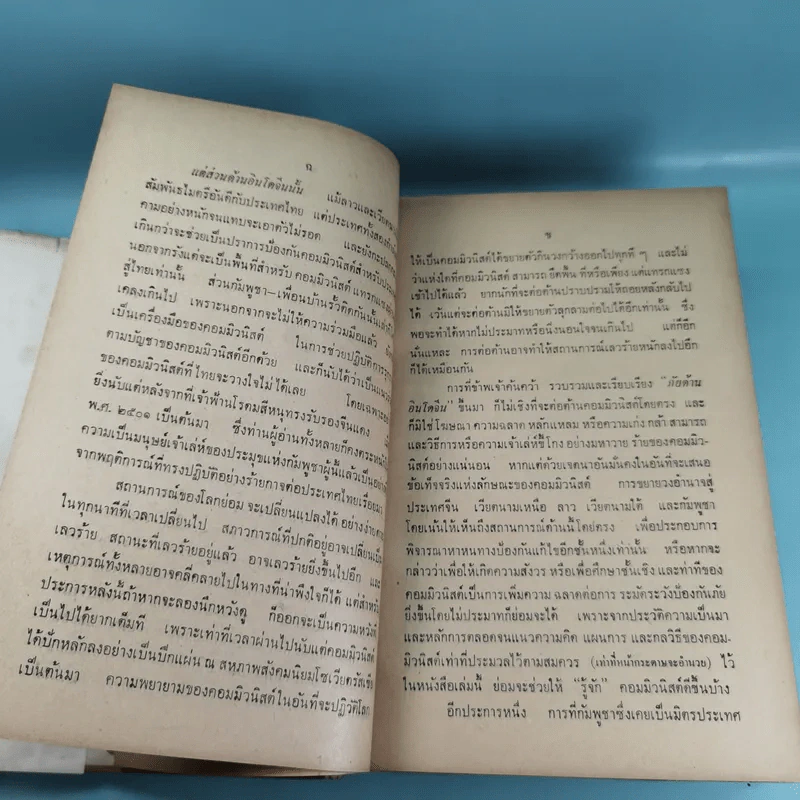 ฉ
แต่ส่วนด้านอินโดจีนนั้น แม้ลาวและเวียดนาม
สัมพันธไมตรีอันดีกับประเทศไทย แต่ประเทศทั้งสองก็
คามอย่างหนักจนแทบจะเอาตัวไม่รอด และยังกะปลก
เกินกว่าจะช่วยเป็นปราการป้องกันคอมมิวนิสต์สำหรับประ
นอกจากรังแต่จะเป็นพื้นที่สำหรับ คอมมิวนิสต์ แทรกแซง
สู่ไทยเท่านั้น ส่วนกัมพูชา–เพื่อนบ้านรั้วติดกันนั้น
เคลงเกินไป เพราะนอกจากจะไม่ให้ความร่วมมือแล้ว
เป็นเครื่องมือของคอมมิวนิสต์ ในการช่วยปฏิบัติการ
ตามบัญชาของคอมมิวนิสต์อีกด้วย และก็นับได้ว่าเป็น
ของคอมมิวนิสต์ที่ไทยจะวางใจไม่ได้เลย โดยเฉพาะ
ยิ่งนับแต่หลังจากที่เจ้าฟ้านโรดมสีหนุทรงรับรองจีนแดง
พ.ศ. ๒๕๐๑ เป็นต้นมา ซึ่งท่านผู้อ่านทั้งหลายก็คงตระหนัก
ความเป็นมนุษย์เจ้าเล่ห์ของประมุขแห่งกัมพูชาผู้นี้แล้วเป็น
จากพฤติการณ์ที่ทรงปฏิบัติอย่างร้ายกาจต่อประเทศไทยเรื่อยมา
สถานการณ์ของโลกย่อม จะเปลี่ยนแปลงได้ อย่างง่ายดาย
ในทุกนาทีที่เวลาเปลี่ยนไป สภาวการณ์ที่ปกติอยู่อาจเปลี่ยนเป็น
เลวร้าย สถานะที่เลวร้ายอยู่แล้ว อาจเลวร้ายยิ่งขึ้นไปอีก และ
เหตุการณ์ทั้งหลายอาจคลี่คลายไปในทางที่น่าพึงใจก็ได้ แต่สำหรับ
ประการหลังนี้ถ้าหากจะลองนึกหวังดู ก็ออกจะเป็นความหวังที่
เป็นไปได้ยากเต็มที เพราะเท่าที่เวลาผ่านไปนับแต่คอมมิวนิสต์
ได้ปักหลักลงอย่างเป็นปึกแผ่น ณ สหภาพสังคมนิยมโซเวียตรัสเซีย
เป็นต้นมา ความพยายามของคอมมิวนิสต์ในอันที่จะปฏิวัติโลก
ช
ให้เป็นคอมมิวนิสต์ได้ขยายตัวกินวงกว้างออกไปทุกที ๆ และไม่
ว่าแห่งใดที่คอมมิวนิสต์ สามารถ ยึดพื้น ที่หรือเพียง แต่แทรกแซง
เข้าไปได้แล้ว ยากนักที่จะต่อต้านปราบปรามให้ถอยหลังกลับไป
ได้ เว้นแต่จะต่อต้านมิให้ขยายตัวลุกลามต่อไปได้อีกเท่านั้น ซึ่ง
พอจะทำได้หากไม่ประมาทหรือนิ่งนอนใจจนเกินไป แต่ก็อีก
นั่นแหละ การต่อต้านอาจทำให้สถานการณ์เลวร้ายหนักลงไปอีก
ก็ได้เหมือนกัน
การที่ข้าพเจ้าค้นคว้า รวบรวมและเรียบเรียง “ภัยด้าน
อินโดจีน” ขึ้นมา ก็ไม่เชิงที่จะต่อต้านคอมมิวนิสต์โดยตรง และ
ก็มิใช่โฆษณา ความฉลาด หลักแหลม หรือความเก่ง กล้า สามารถ
และวิธีการหรือความเจ้าเล่ห์ขี้โกง อย่างมหาวาย ร้ายของคอมมิว-
นิสต์อย่างแน่นอน หากแต่ด้วยเจตนาอันมั่นคงในอันที่จะเสนอ
ข้อเท็จจริงแห่งลักษณะของคอมมิวนิสต์ การขยายวงอำนาจสู่
ประเทศจีน เวียดนามเหนือ ลาว เวียดนามใต้ และกัมพูชา
โดยเน้นให้เห็นถึงสถานการณ์ด้านนี้โดยตรง เพื่อประกอบการ
พิจารณาหาหนทางป้องกันแก้ไขอีกชั้นหนึ่งเท่านั้น หรือหากจะ
กล่าวว่าเพื่อให้เกิดความสังวร หรือเพื่อศึกษาชั้นเชิง และท่าทีของ
คอมมิวนิสต์เป็นการเพิ่มความ ฉลาดต่อการ ระมัดระวังป้องกันภัย
ยิ่งขึ้นโดยไม่ประมาทก็ย่อมจะได้ เพราะจากประวัติความเป็นมา
และหลักการตลอดจนแนวความคิด แผนการ และกลวิธีของคอม-
มิวนิสต์เท่าที่ประมวลไว้ตามสมควร (เท่าที่หน้ากระดาษจะอำนวย) ไว้
ในหนังสือเล่มนี้ ย่อมจะช่วยให้ “รู้จัก” คอมมิวนิสต์ดีขึ้นบ้าง
อีกประการหนึ่ง การที่กัมพูชาซึ่งเคยเป็นมิตรประเทศ